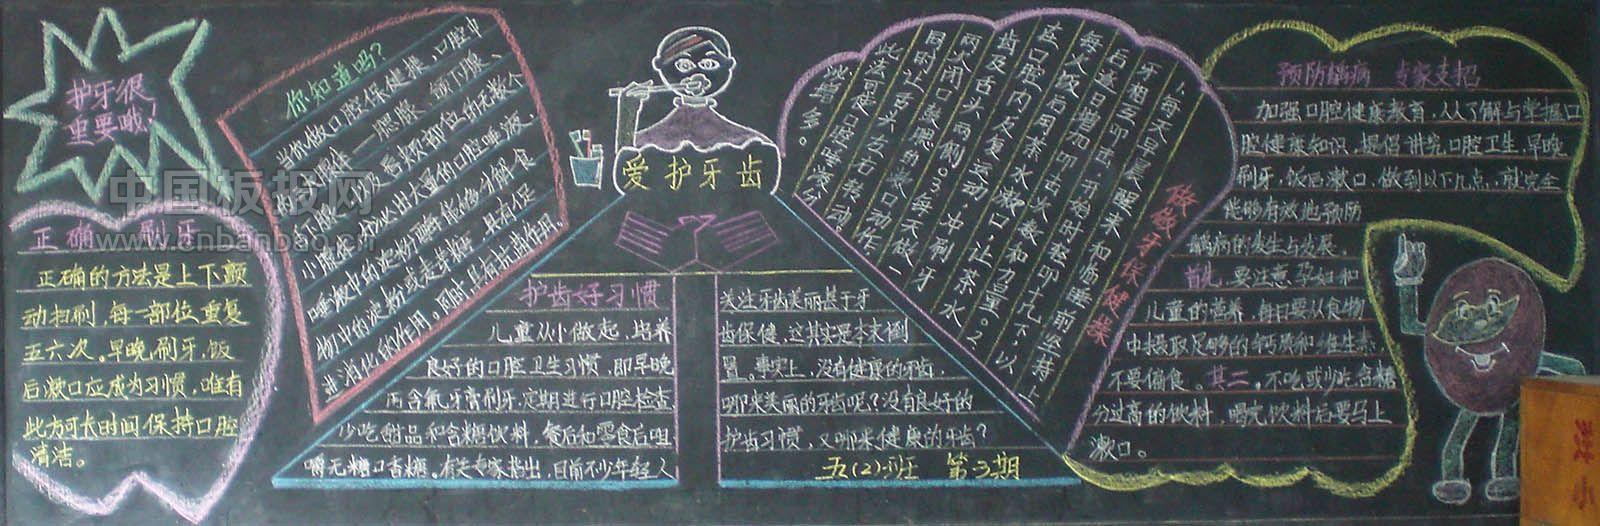 护牙很
重要哦!
正确 刷牙
正确的方法是上下颤
动扫刷,每一部位重复
五六次。早晚刷牙,饭
后漱口应成为习惯,唯有
此方可长时间保持口腔
清洁。
中国板报网
www.cnbanbao.cn
你知道吗?
当你做口腔保健操,口腔中
的大腺体——腮腺、颌下腺、
舌下腺以及唇颊部位的无数个
小腺体,分泌出大量的口腔唾液,
唾液中的淀粉酶能够分解食
物中的淀粉或麦芽糖,具有促
进消化的作用。同时,具有洁齿作用。
爱护牙齿
护齿好习惯
儿童从小做起,培养
良好的口腔卫生习惯,即早晚
用含氟牙膏刷牙,定期进行口腔检查,
少吃甜品和含糖饮料,餐后和零食后咀
嚼无糖口香糖。有关专家指出,目前不少年轻人
关注牙齿美丽甚于牙
齿保健,这其实是本末倒
置。事实上,没有健康的牙齿,
哪来美丽的牙齿呢?没有良好的
护齿习惯,又哪来健康的牙齿?
五(2)班 第3期
做做牙保健操
1、每天早晨醒来和临睡前坚持上
牙相互叩击,开始时轻叩十几下,以
后逐日增加叩击次数和力量。2、
每次饭后用茶水漱口,让茶水
在口腔内反复运动,冲刷牙
齿及舌头两侧。3、每天做一
两次闭口鼓腮的漱口动作,
同时让舌头左右转动。
此法可使口腔唾液分
泌增多。
预防龋病 专家支招
加强口腔健康教育,从了解与掌握口
腔健康知识,提倡讲究口腔卫生,早晚
刷牙,饭后漱口,做到以下几点,就完全
能够有效地预防
龋病的发生与发展。
首先,要注意孕妇和
儿童的营养,每日要从食物
中摄取足够的钙质和维生素
不要偏食。其二,不吃或少吃含糖
分过高的饮料,喝完饮料后要马上
漱口。